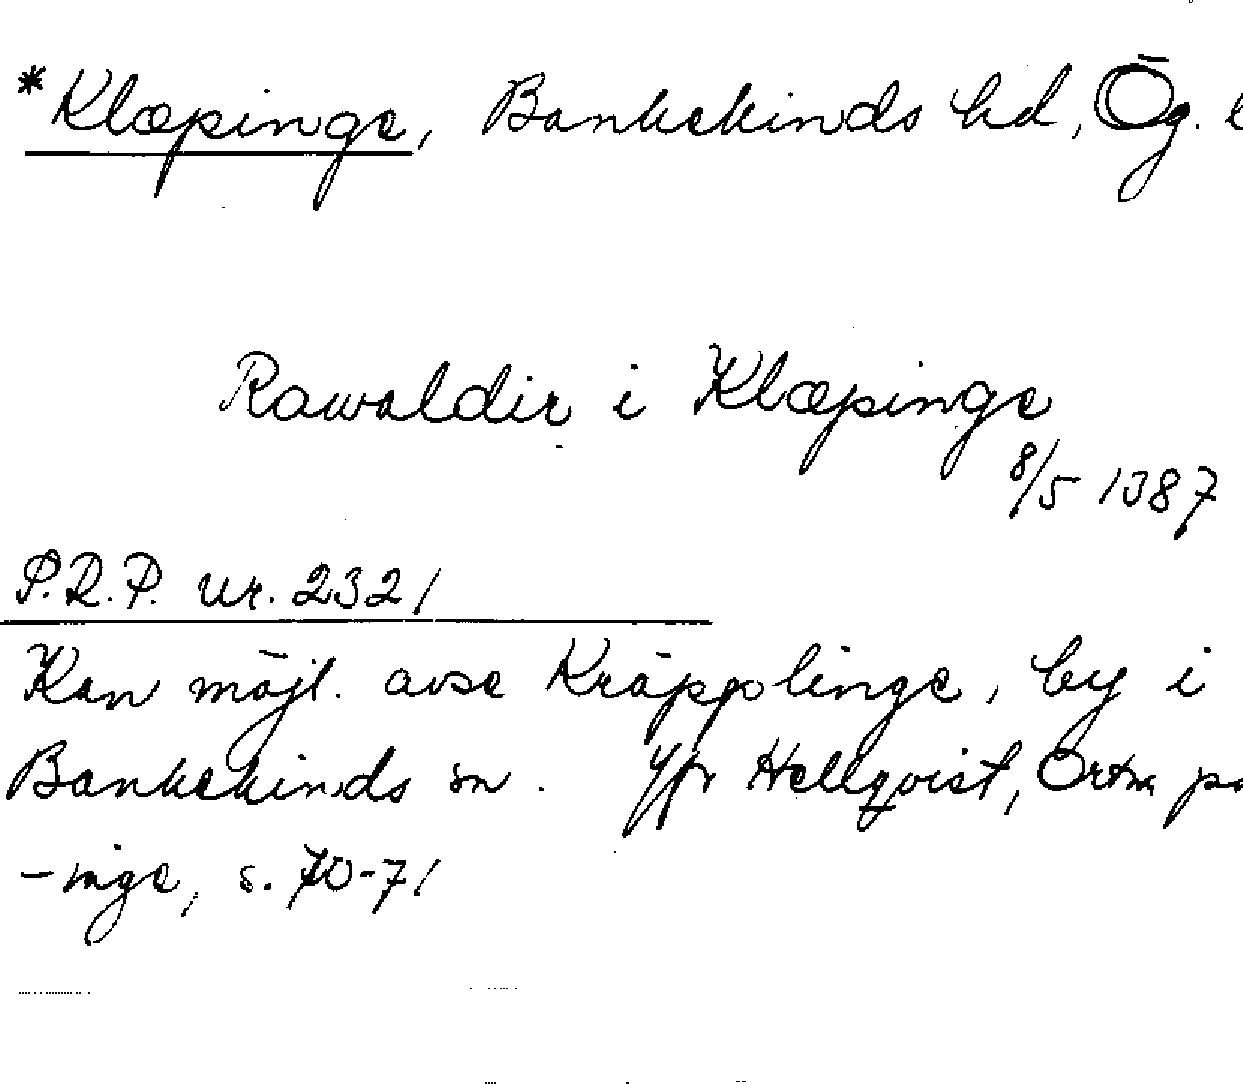 *Klæpinge, Bankekinds hd, Ög. l
Rawaldir i Klæpinge
8/5 1387
P.R.P. nr. 2321
Kan möjl. avse Kräpplinge, by i
Bankekinds sn. Jfr Hellqvist, Ortn. på
-inge, s. 70-71